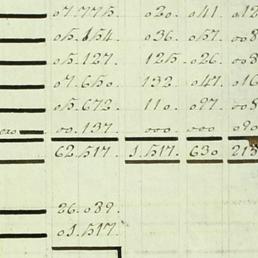 07.775. 020. 041. 012
05.454 036. 057. 008
05.127. 125. 026. 008
07.650. 132. 047. 016
05.672. 110. 097. 008
000.137. 000. 000 090
62.517. 1.517. 630 213
26.089.
01.517.